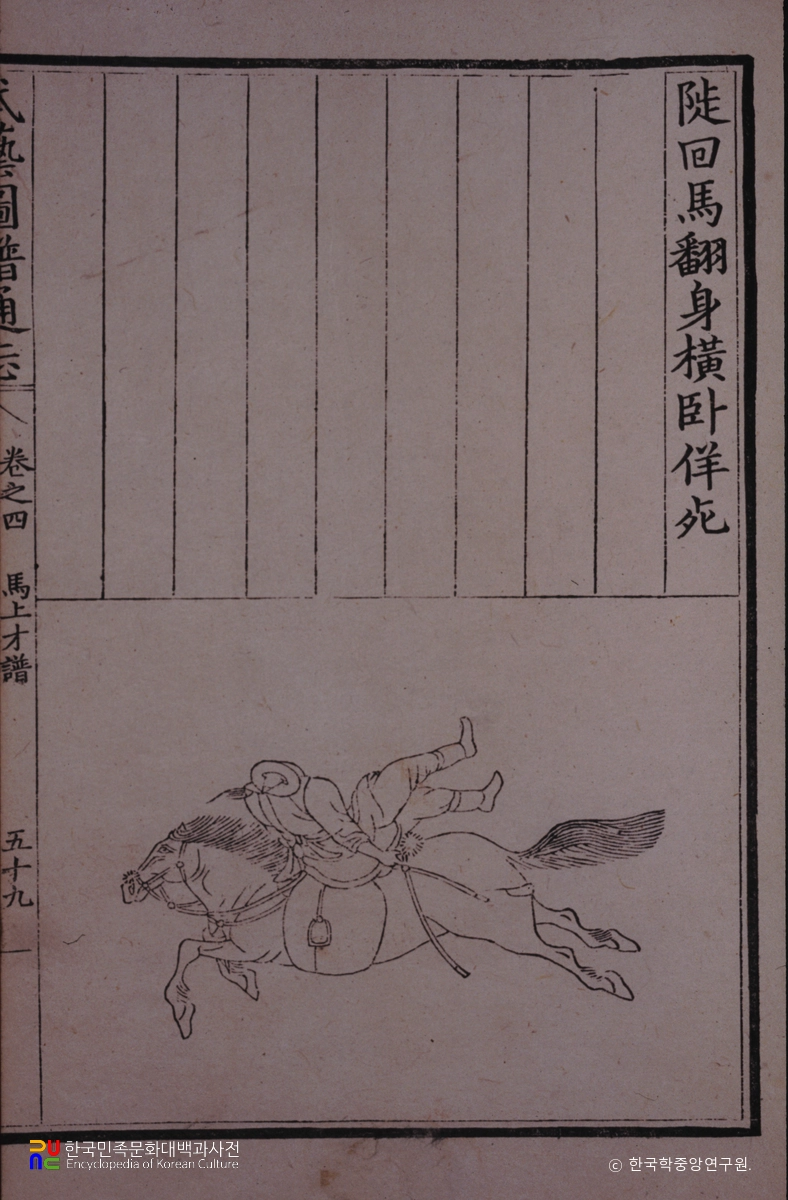 陡回馬翻身橫卧佯死
武藝圖譜通志
卷之四 馬上才譜
五十九
한국민족문화대백과사전
Encyclopedia of Korean Culture
© 한국학중앙연구원.